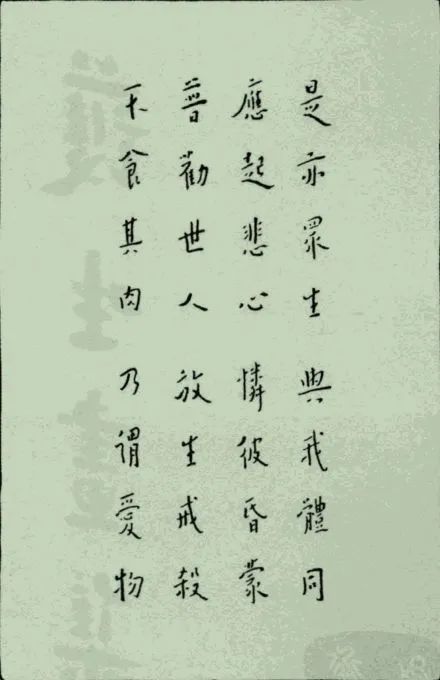 是亦眾生與我體同
應起悲心憐彼昏蒙
普勸世人放生戒殺
不食其肉乃謂愛物